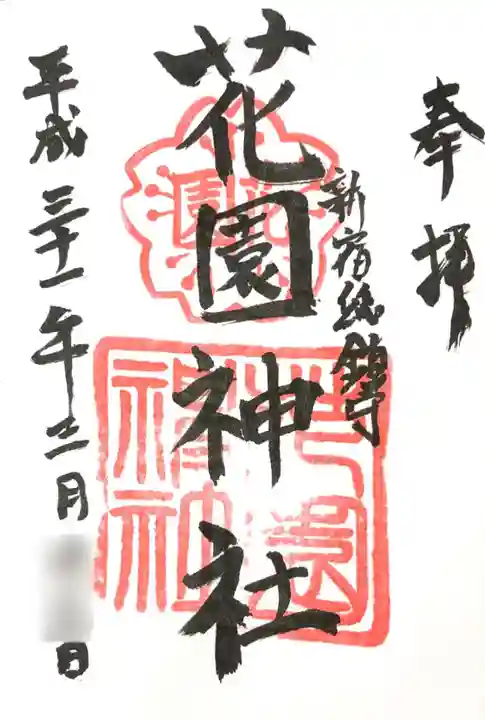 奉拝
新宿総鎮守
花園神社
花園
花園神社
平成三十一年二月
日